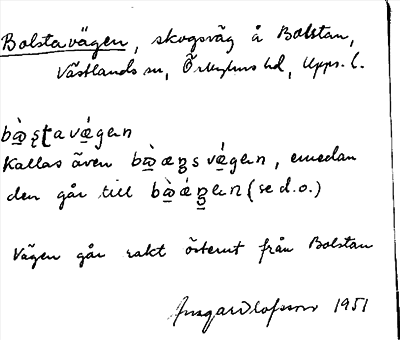 Bolstavägen, skogsväg å Bolstan,
Västlands sn, Örbyhus hd, Upps. l.
Kallas även
, emedan
den går till
(se d.o.)
Vägen går rakt österut från Bolstan
Ansgar Olofsson 1951